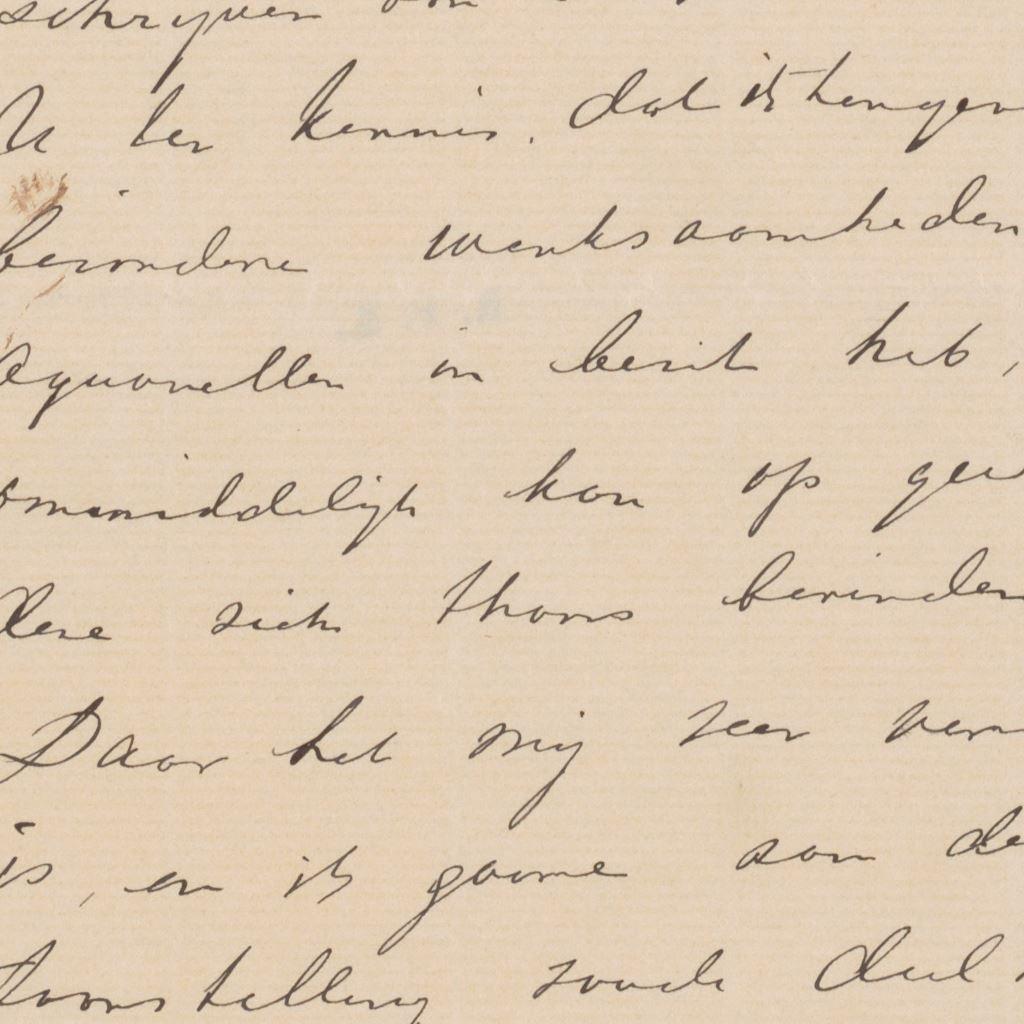 schrijven van
U ter kennis, dat ik tengev
bezondere werksaamheden
aquarellen in bezit heb,
onmiddelijk kan op gev
deze zich thans bevinden
Daar het mij zeer vere
is, en ik gaarne aan de
toonstelling zoude deel